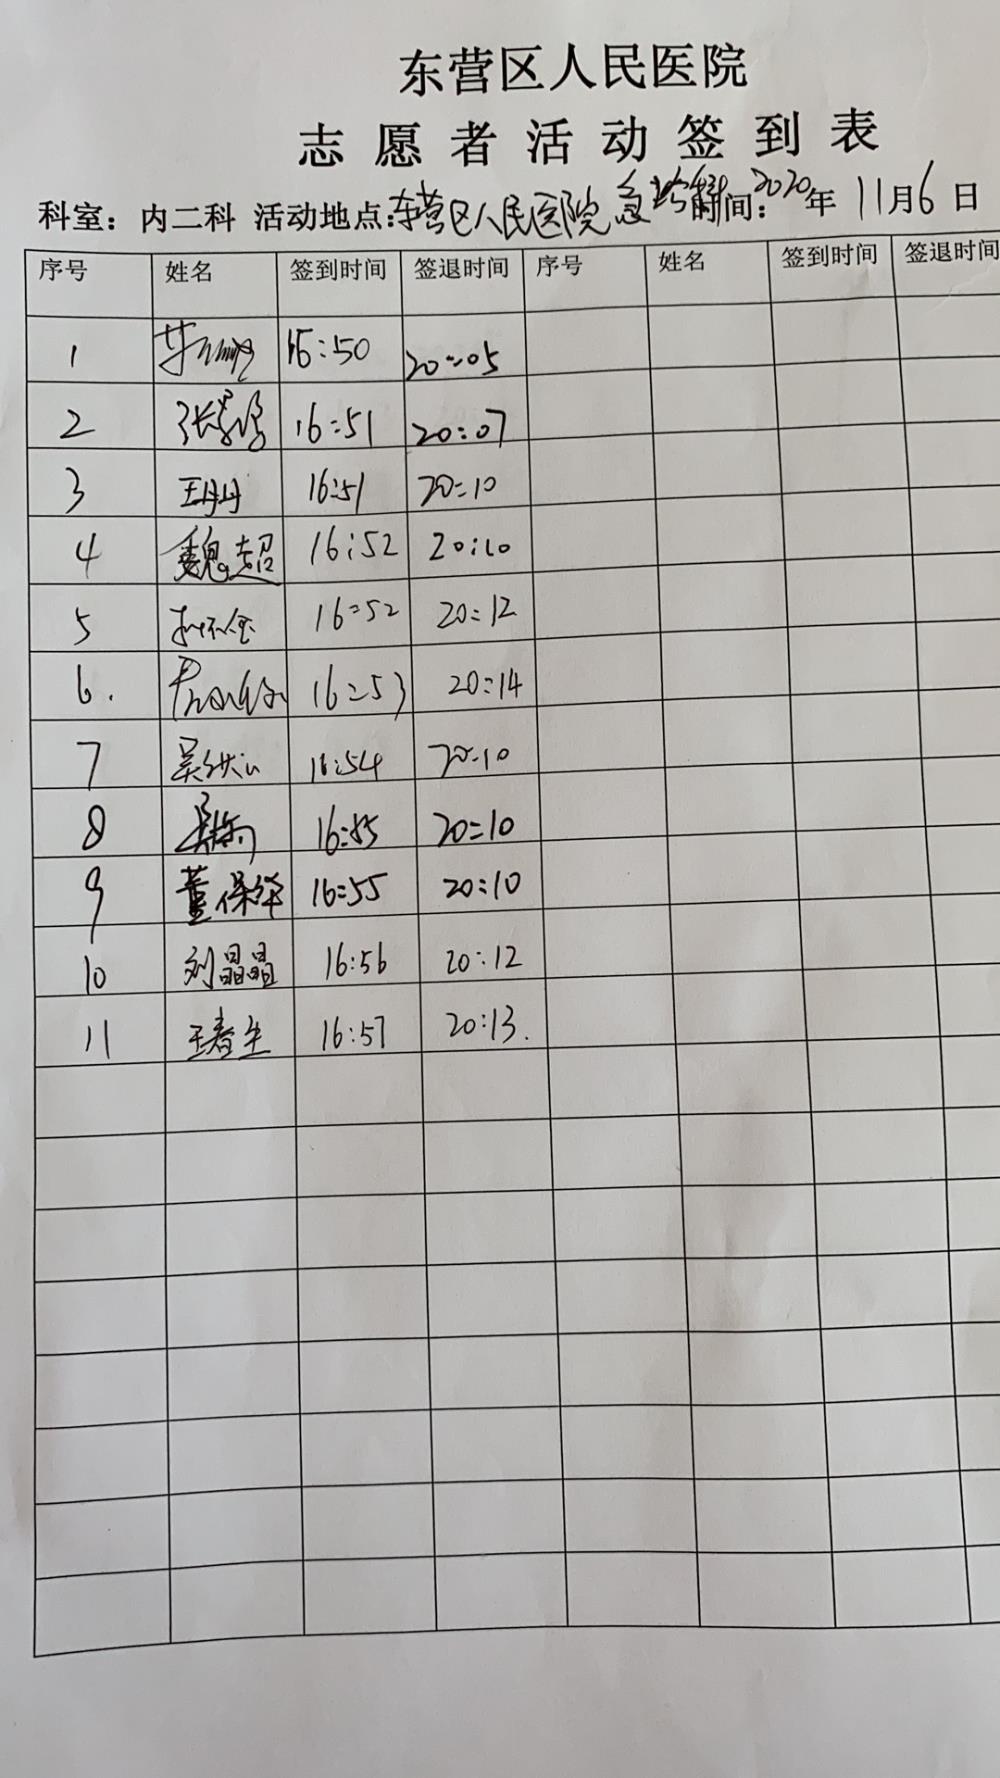 东营区人民医院
志愿者活动签到表
科室：内二科 活动地点：东营区人民医院急诊科 时间：2020年 11月6日
序号 姓名 签到时间 签退时间 序号 姓名 签到时间 签退时间
1 16:50 20:05
2 16:51 20:07
3 王丹丹 16:51 20:10
4 魏超 16:52 20:10
5 16:52 20:12
6. 16:53 20:14
7 16:54 20:10
8 16:55 20:10
9 董保华 16:55 20:10
10 刘晶晶 16:56 20:12
11 王春生 16:57 20:13.